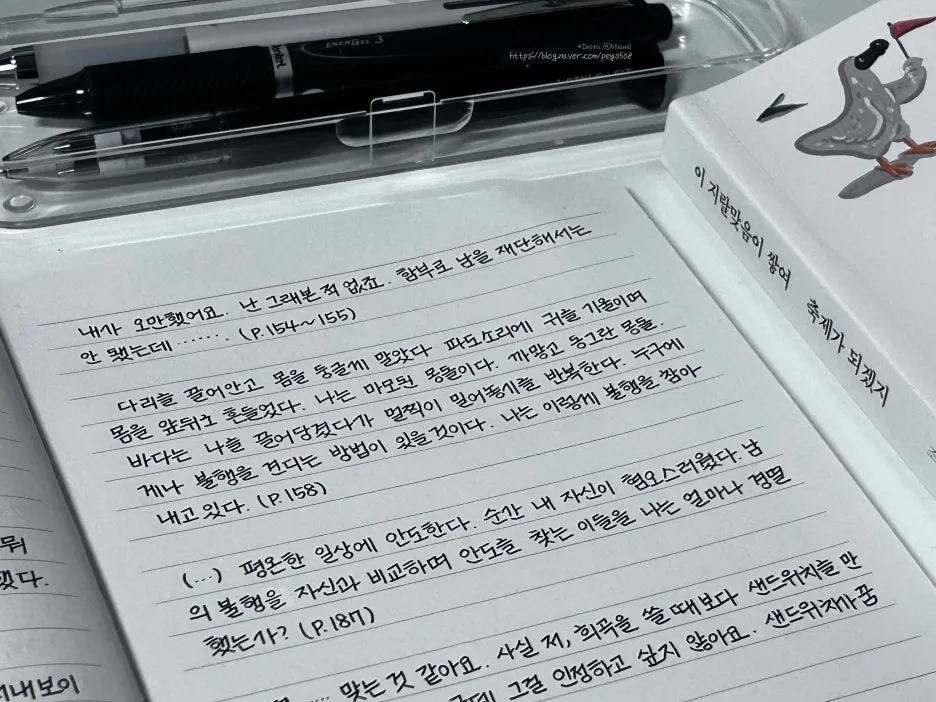 ENERGEL 3
Pentel
*Insta.@
https://blog.naver.com/pey0508
이 지랄맞음이 쌓여 축제가 되겠지
내가 오만했어요. 난 그래본 적 없죠. 함부로 남을 재단해서는
안 됐는데 ‥‥‥. (P.154~155)
다리를 끌어안고 몸을 둥글게 말았다 파도소리에 귀를 기울이며
몸을 앞뒤로 흔들었다. 나는 마모된 몽돌이다. 까맣고 동그란 몽돌.
바다는 나를 끌어당겼다가 멀찍이 밀어놓기를 반복한다. 누구에
게나 불행을 견디는 방법이 있을것이다. 나는 이렇게 불행을 참아
내고 있다. (P.158)
(...) 평온한 일상에 안도한다. 순간 내 자신이 혐오스러웠다. 남
의 불행을 자신과 비교하며 안도를 찾는 이들을 나는 얼마나 경멸
했는가? (P.187)
맞는 것 같아요. 사실 저, 희곡을 쓸 때보다 샌드위치를 만
그걸 인정하고 싶지 않아요. 샌드위치가 꿈
뭐
했다.
내보이